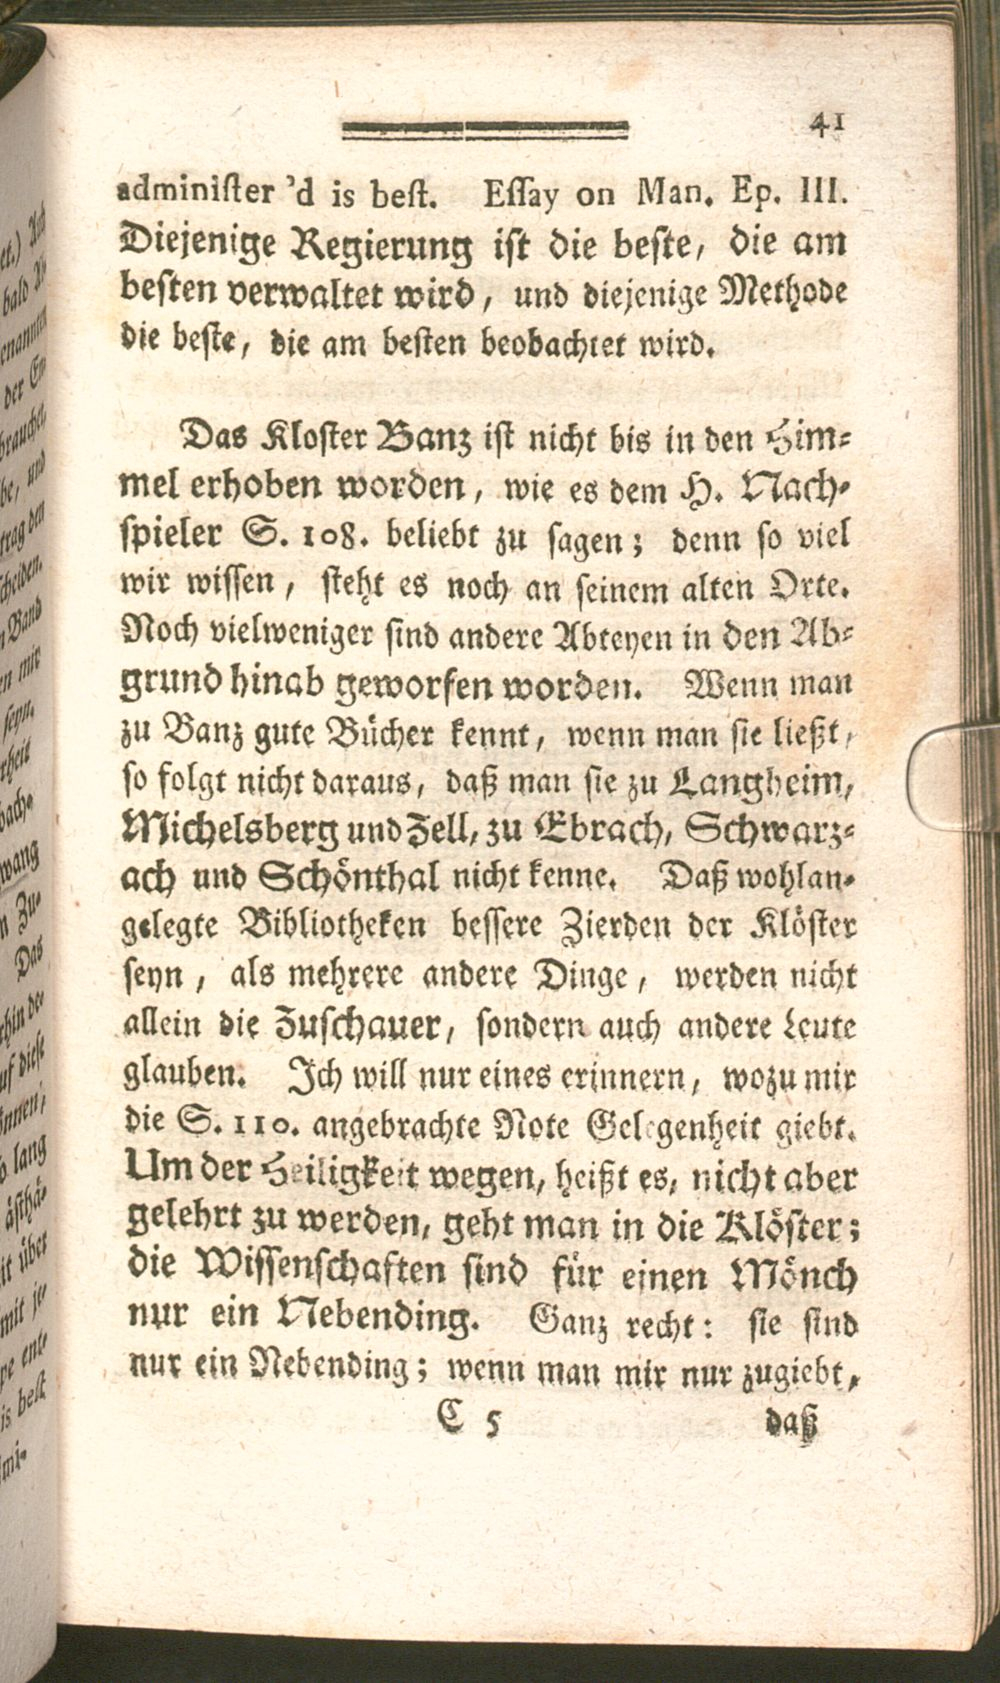 41
administer 'd is best. Essay on Man. Ep. III.
Diejenige Regierung ist die beste, die am
besten verwaltet wird, und diejenige Methode
die beste, die am besten beobachtet wird.
Das Kloster Banz ist nicht bis in den Him-
mel erhoben worden, wie es dem H. Nach-
spieler S. 108. beliebt zu sagen; denn so viel
wir wissen, steht es noch an seinem alten Orte.
Noch vielweniger sind andere Abteyen in den Ab-
grund hinab geworfen worden. Wenn man
zu Banz gute Bücher kennt, wenn man sie ließt,
so folgt nicht daraus, daß man sie zu Langheim,
Michelsberg und Zell, zu Ebrach, Schwarz-
ach und Schönthal nicht kenne. Daß wohlan-
gelegte Bibliotheken bessere Zierden der Klöster
seyn, als mehrere andere Dinge, werden nicht
allein die Zuschauer, sondern auch andere Leute
glauben. Ich will nur eines erinnern, wozu mir
die S. 110. angebrachte Note Gelegenheit giebt.
Um der Heiligkeit wegen, heißt es, nicht aber
gelehrt zu werden, geht man in die Klöster;
die Wissenschaften sind für einen Mönch
nur ein Nebending. Ganz recht: sie sind
nur ein Nebending; wenn man mir nur zugiebt,
C 5 daß